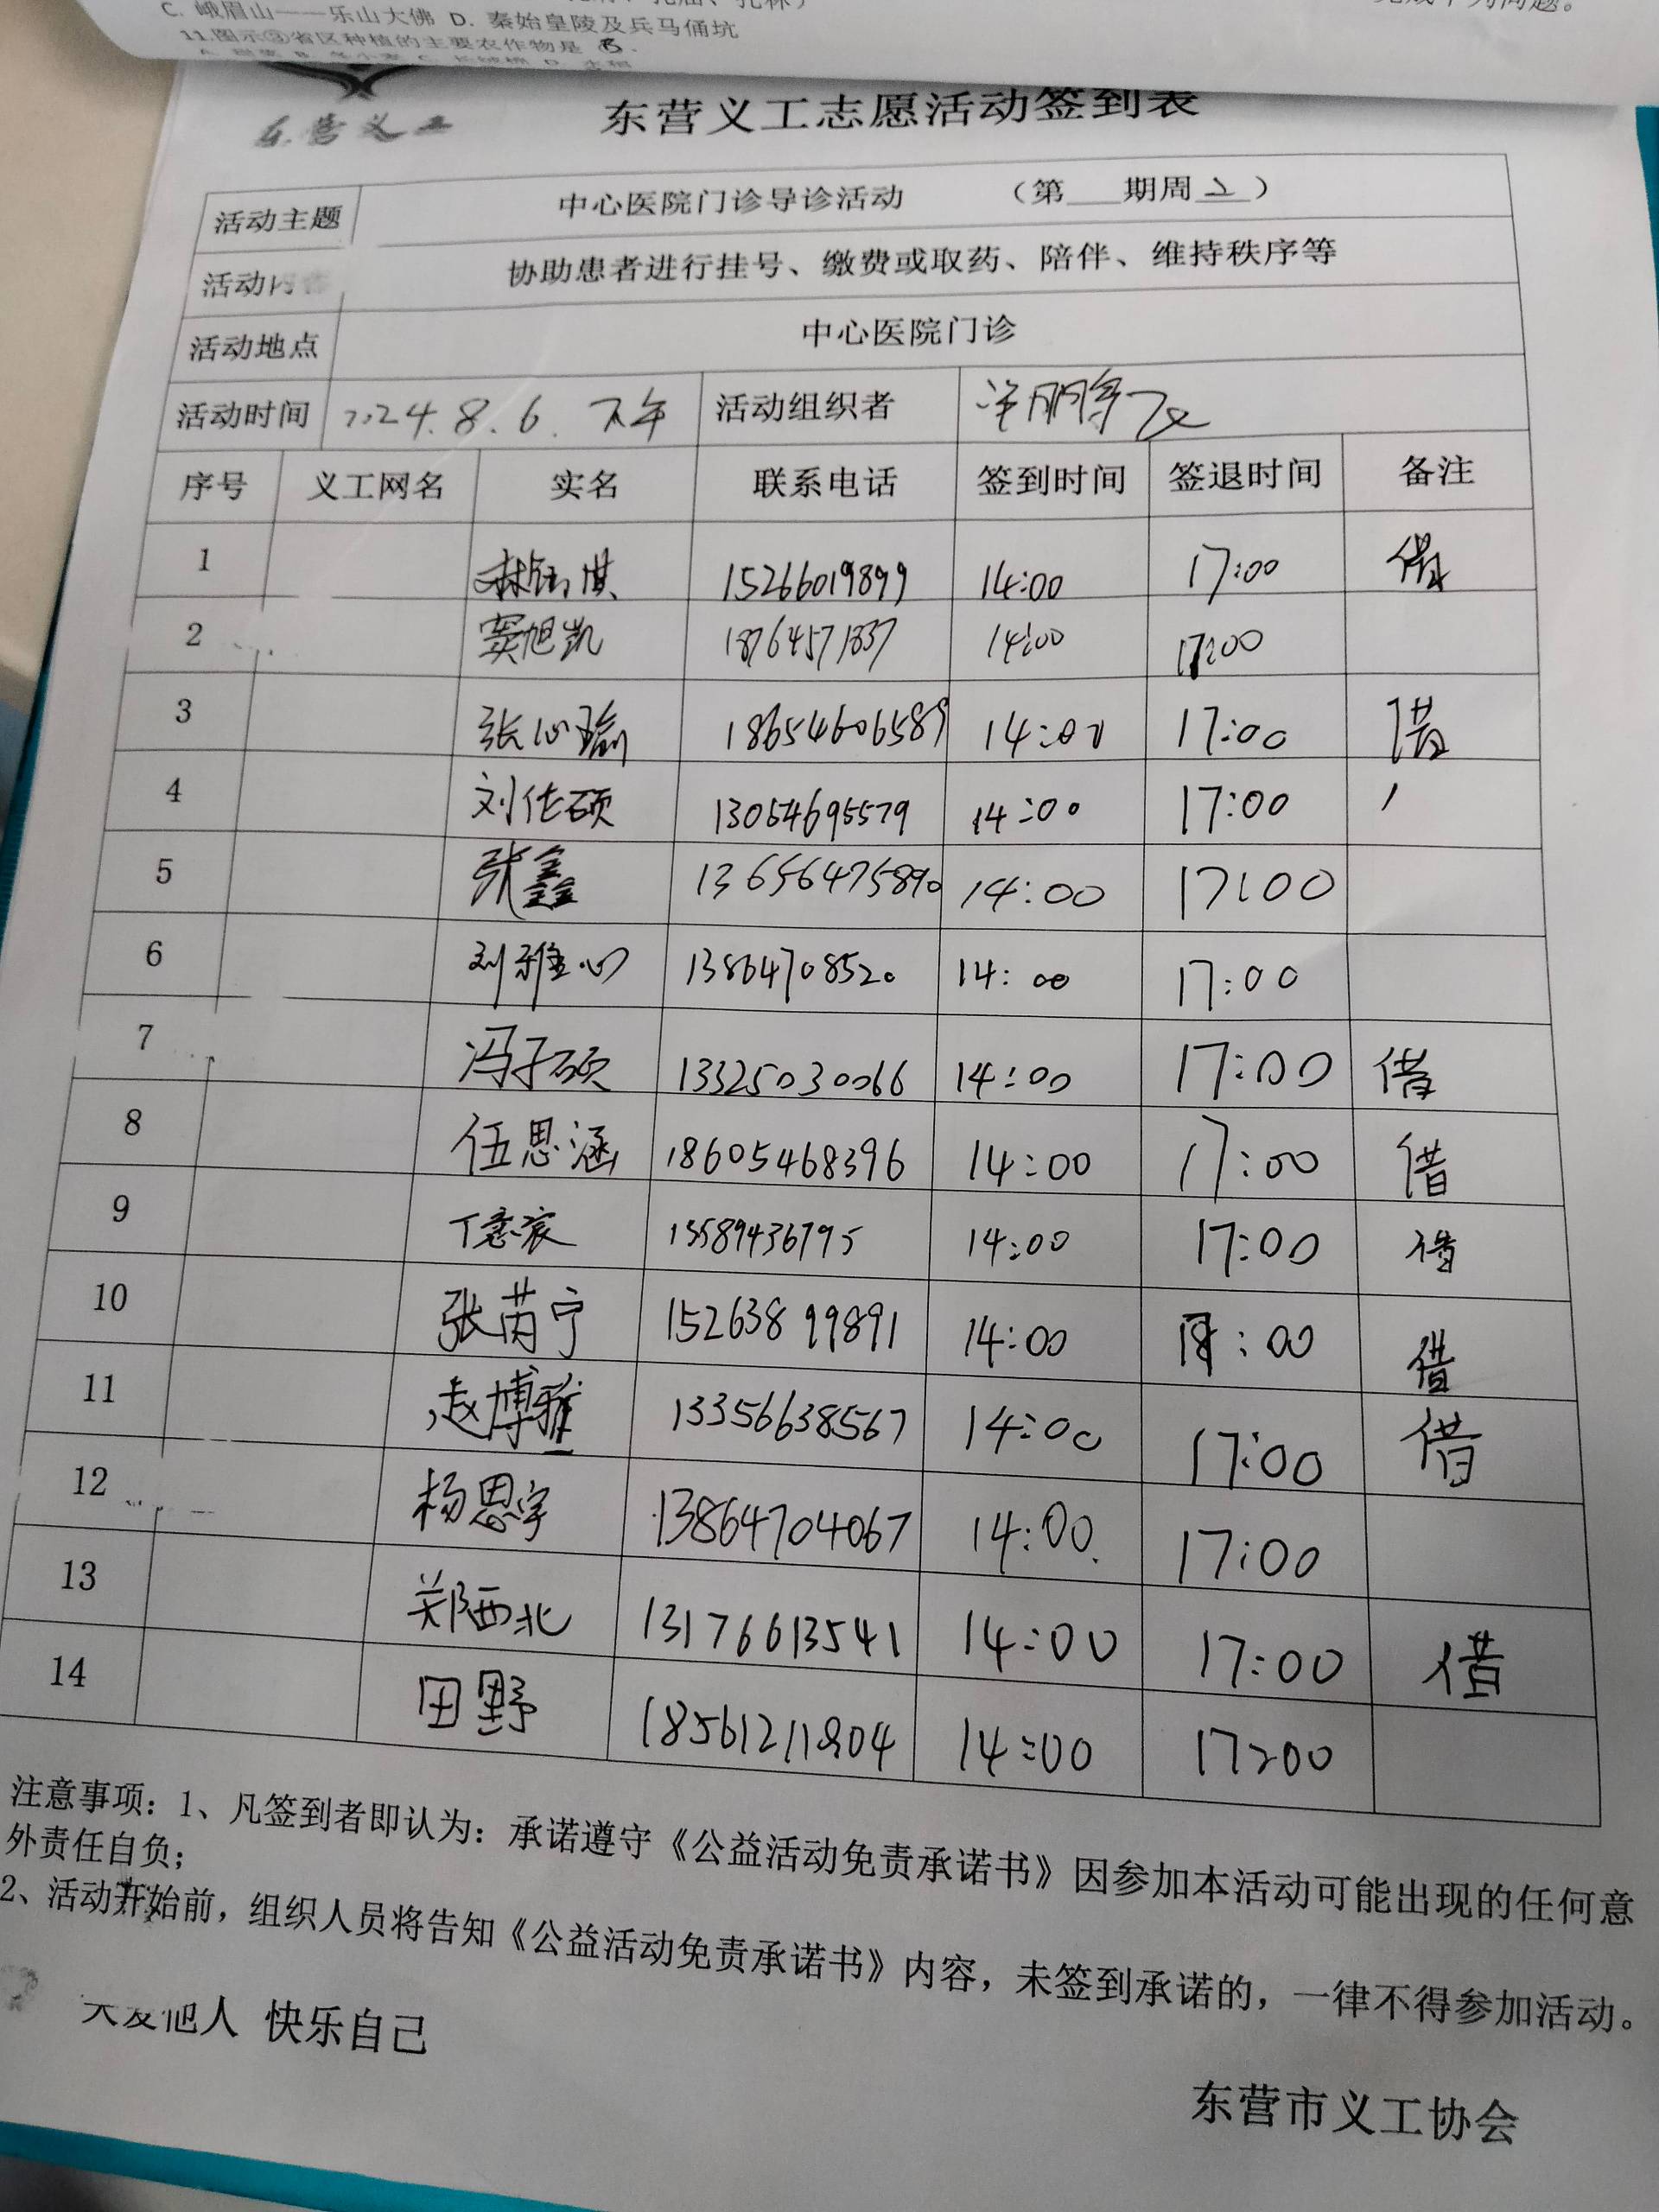 C. 峨眉山——乐山大佛 D. 秦始皇陵及兵马俑坑
11.图示③省区种植的主要农作物是 B.
东营义工
东营义工志愿活动签到表
活动主题 中心医院门诊导诊活动 （第___期周二）
活动内容 协助患者进行挂号、缴费或取药、陪伴、维持秩序等
活动地点 中心医院门诊
活动时间 2024.8.6.下午 活动组织者
序号 义工网名 实名 联系电话 签到时间 签退时间 备注
1 15266019899 14:00 17:00 借
2 窦旭凯 18764571837 14:00 17:00
3 张心瑜 18654606589 14:00 17:00 借
4 刘佳硕 13054695579 14:00 17:00
5 张鑫 13656475890 14:00 17:00
6 刘雅心 13864708520 14:00 17:00
7 冯子硕 13325030066 14:00 17:00 借
8 伍思涵 18605468396 14:00 17:00 借
9 丁意宸 13589436795 14:00 17:00 借
10 张芮宁 15263899891 14:00 :00 借
11 赵博雅 13356638567 14:00 17:00 借
12 杨思宇 13864704067 14:00 17:00
13 郑西北 13176613541 14:00 17:00 借
14 田野 18561211804 14:00 17:00
注意事项：1、凡签到者即认为：承诺遵守《公益活动免责承诺书》因参加本活动可能出现的任何意
外责任自负；
2、活动开始前，组织人员将告知《公益活动免责承诺书》内容，未签到承诺的，一律不得参加活动。
关爱他人 快乐自己
东营市义工协会